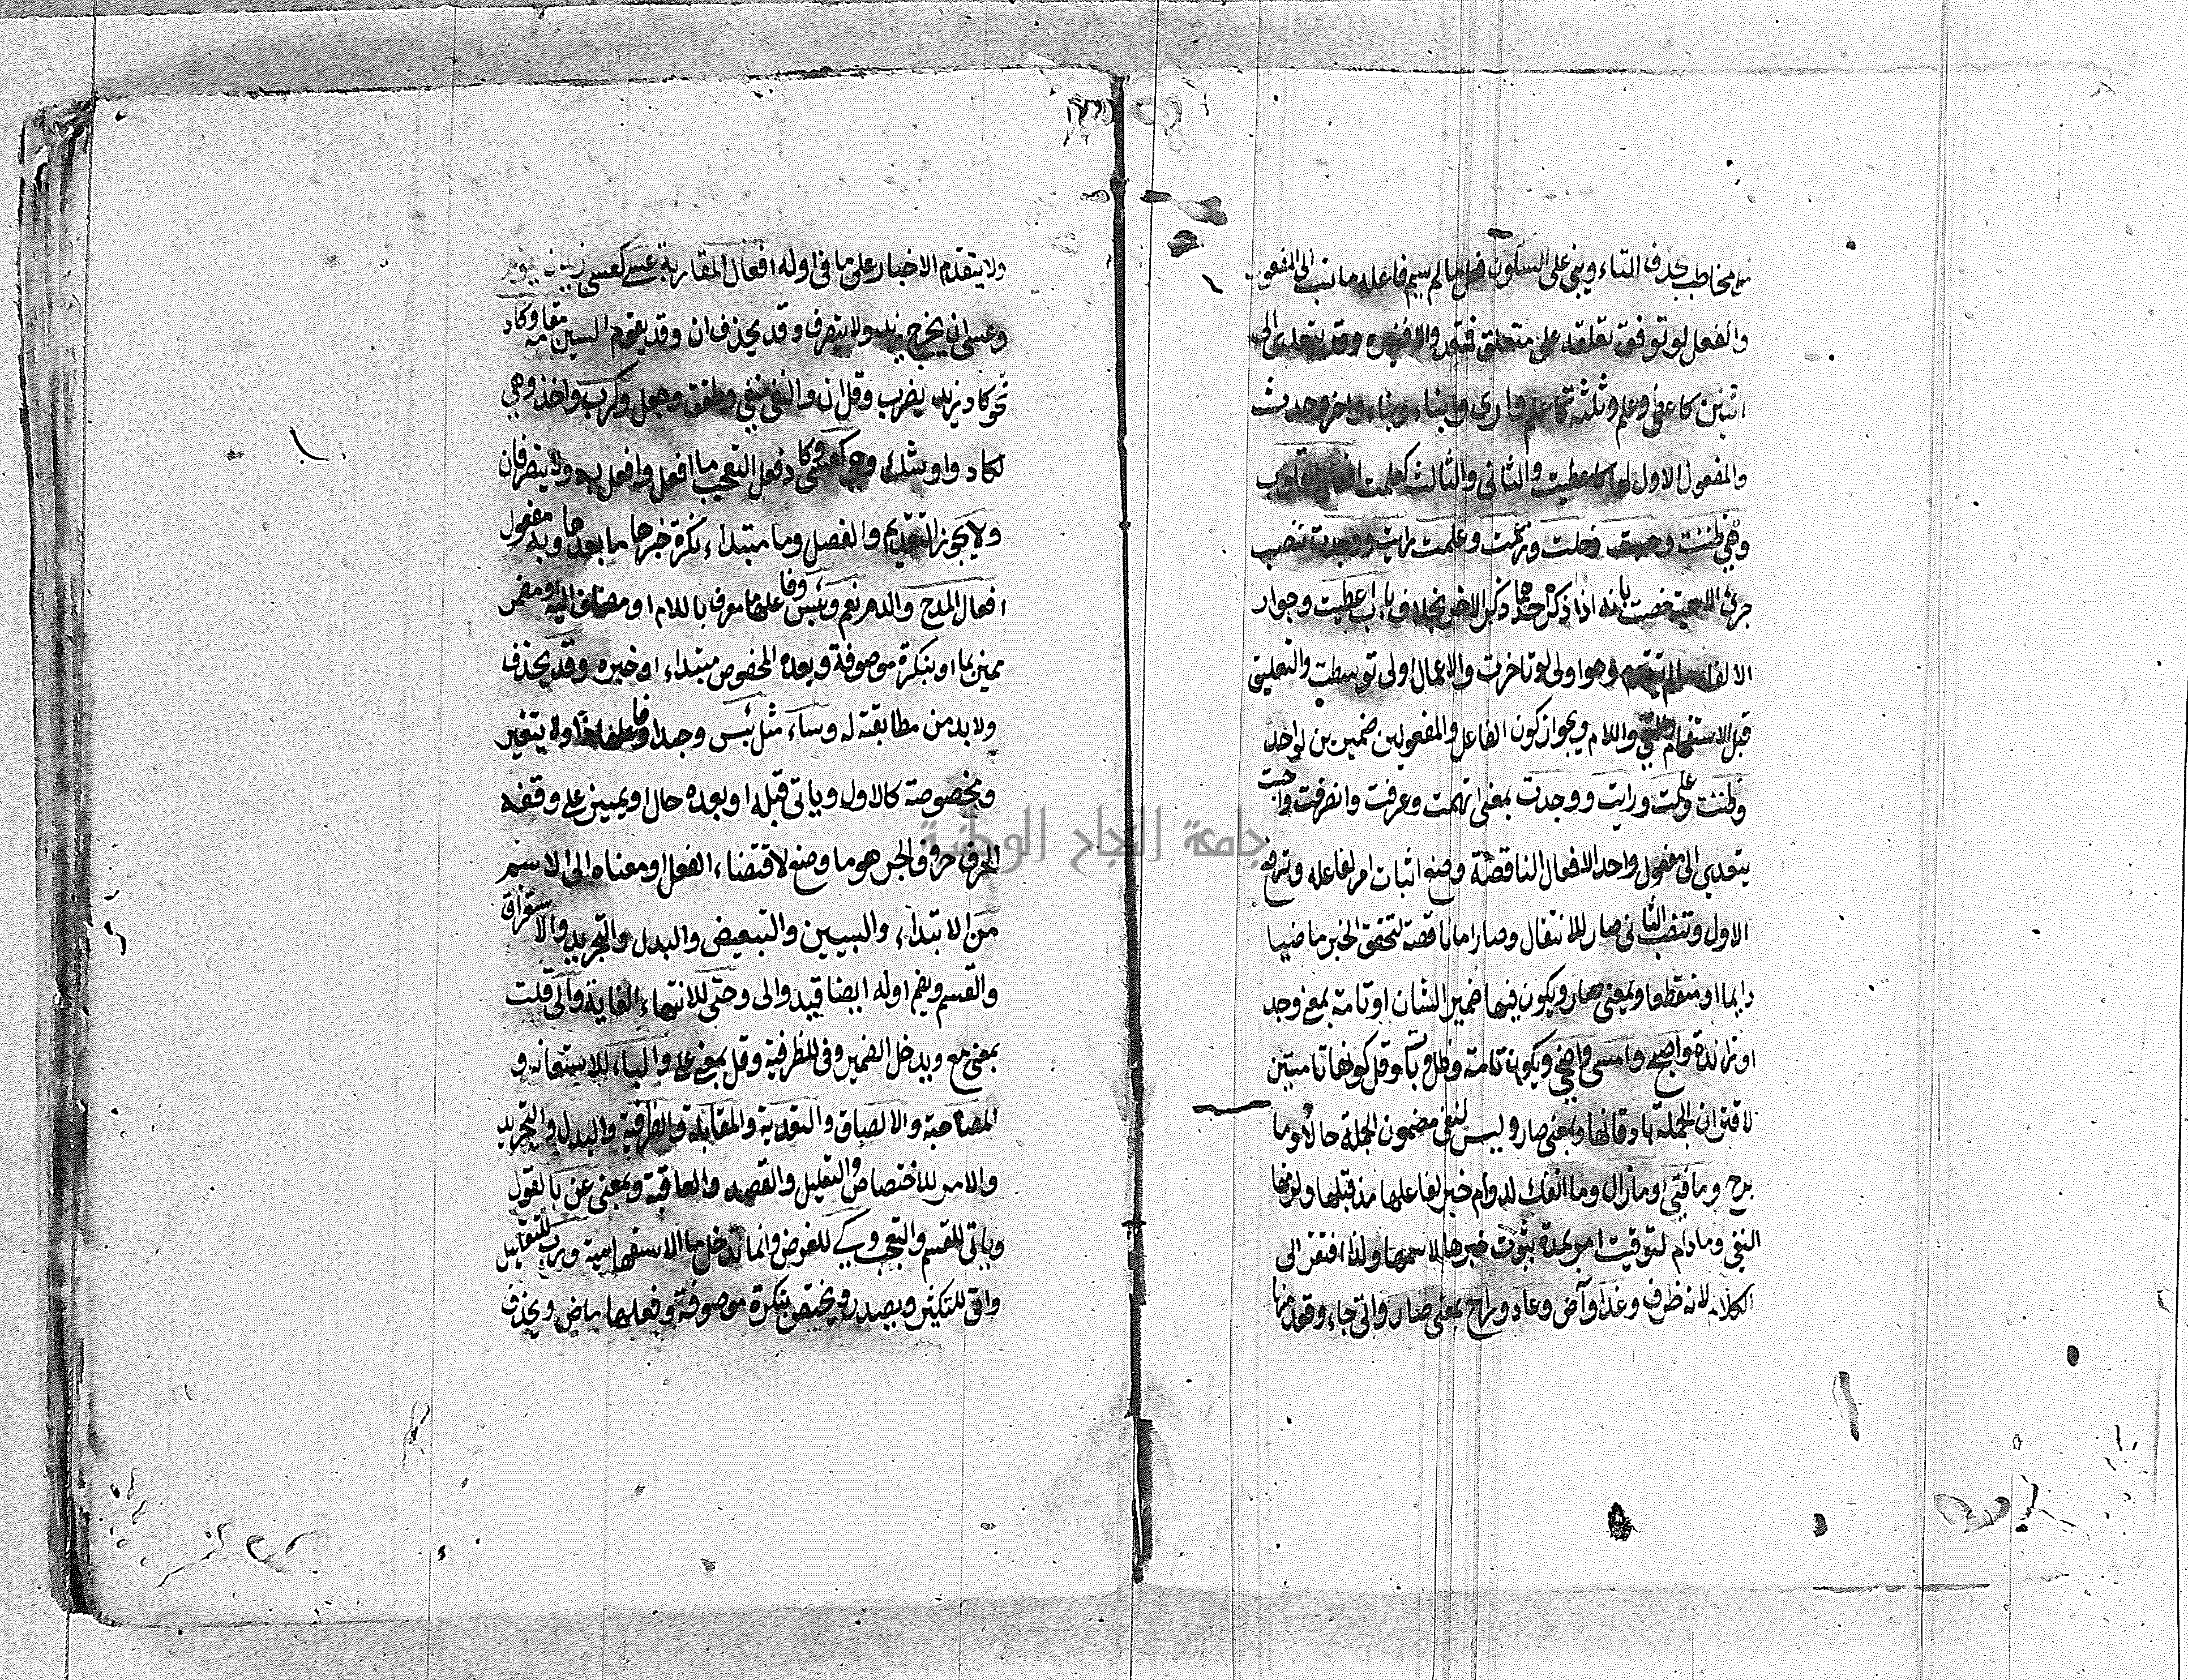 مخاطب بحذف التاء ويبنى على السكون فعل ما لم يسم فاعله ما نسب الى المفعول
والفعل لو توقف تعلقه على متعلق فمتعد والا فغيره وقد يتعدى الى
اثنين كاعطى وعلم وثلثة كاعلم وارى وانباء ونباء واخبر وحدث
والمفعول الاول كاعطيت والثانى والثالث كعلمت افعال القلوب
وهي ظننت وحسبت وخلت وزعمت وعلمت ورايت ووجدت تنصب
جزئى الاسمية خصت بانه اذا ذكر احدهما ذكر الاخر بخلاف باب اعطيت وجواز
الالغاء وهو اولى لو تاخرت والاعمال اولى لو توسطت والتعليق
قبل الاستفهام والنفى واللام ويجوز كون الفاعل والمفعولين ضميرين لواحد
وظننت وعلمت ورايت ووجدت بمعنى اتهمت وعرفت وابصرت واصبت
يتعدى الى مفعول واحد الافعال الناقصة وضع اثبات امر لفاعله وترفع
الاول وتنصب الثانى صار للانتقال وصار اما ناقصة لتحقق الخبر ماضيا
دايما او منقطعا وبمعنى صار ويكون فيها ضمير الشان او تامة بمعنى وجد
او زائدة واصبح وامسى واضحى ويكون تامة وظل وبات وقل كونها تامتين
لاقتران الجملة باوقاتها وبمعنى صار وليس لنفى مضمون الجملة حالا وما
برح وما فتى وما زال وما انفك لدوام خبر لفاعلها مذ قبلها ولزمها
النفى وما دام لتوقيت امر بمدة ثبوت خبرها لاسمها ولذا افتقر الى
الكلام لانه ظرف وغدا وآض وعاد وراح بمعنى صار واتى جاء وقعد منها
ولا يتقدم الاخبار على ما فى اوله افعال المقاربة عسى كعسى زيد ان يخرج
وعسى ان يخرج زيد ولا يتصرف وقد يحذف ان وقد يقوم السين مقامه وكاد
نحو كاد زيد يضرب وقل ان والنفى منفى وطفق وجعل وكرب واخذ وهي
لكاد واوشك وهى كعسى وكاد فعل التعجب ما افعل وافعل به ولا يتصرفان
ولا يجوز التقديم والفصل وما مبتداء نكرة خبرها ما بعدها وبه مفعول
افعال المدح والذم نعم وبئس وفاعلها معرف باللام او مضاف اليه او مضمر
مميز بما او بنكرة موصوفة وبعده المخصوص مبتداء او خبره وقد يحذف
ولا بد من مطابقته له وساء مثل بئس وحبذا وفاعلها ذا ولا يتغير
ومخصوصه كالاول وياتى قبله او بعده حال او تمييز على وقفه
الحرف حروف الجر هو ما وضع لاقتضاء الفعل او معناه الى الاسم
من الابتداء والتبيين والتبعيض والبدل والتجريد والاستغراق
والقسم ويضم اوله ايضا قيد والى وحتى للانتهاء الغاية والى قلت
بمعنى مع ويدخل الضمير وفى للظرفية وقل بمعنى على والباء للاستعانة و
المصاحبة والالصاق والتعدية والمقابلة والظرفية والبدل والتجريد
والامر للاختصاص والتعليل والقصد والعاقبة وبمعنى عن بالقول
وياتى للقسم والتعجب وكى للغرض وانما تدخل ما الاستفهامية ورب للتقليل
واتى للتكثير ويصدر ويختص بنكرة موصوفة وفعلها ماض ويحذف
جامعة النجاح الوطنية